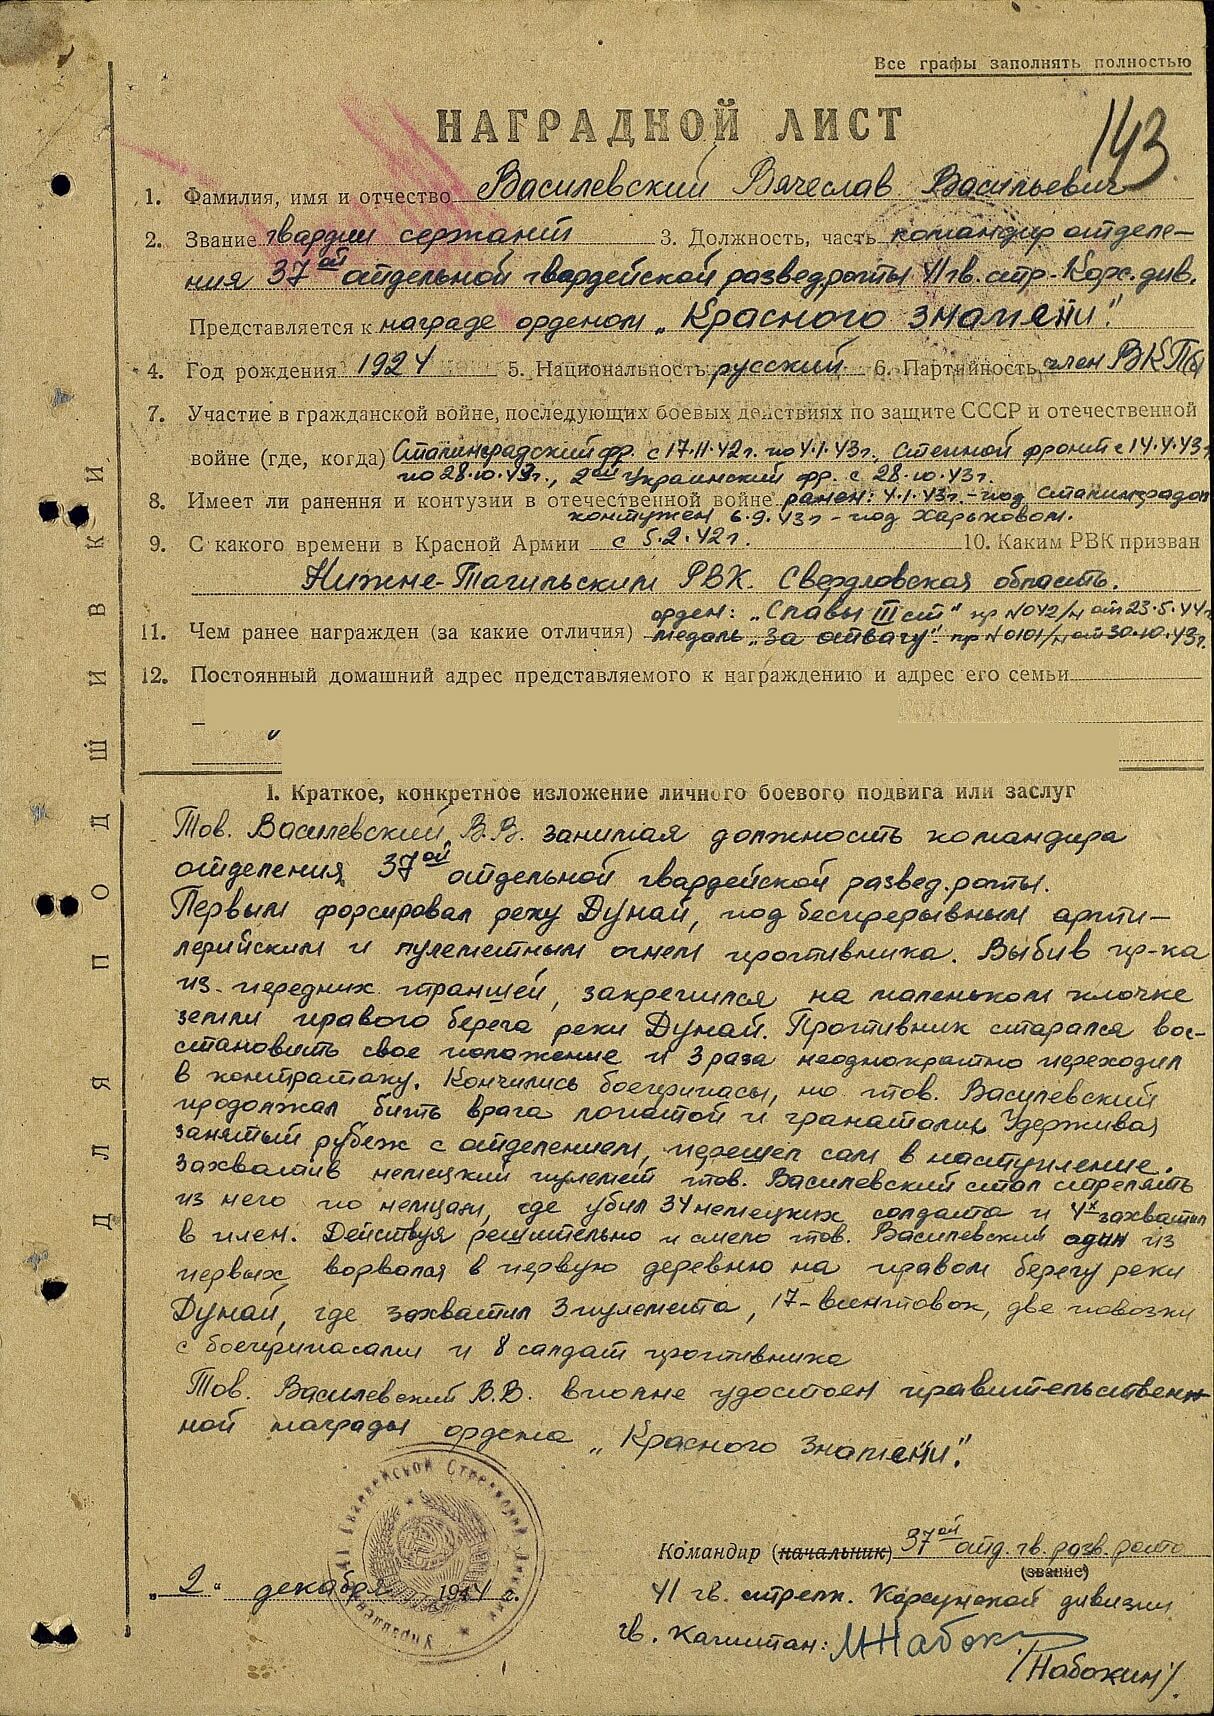 Все графы заполнять полностью
НАГРАДНОЙ ЛИСТ
143
1. Фамилия, имя и отчество Василевский Вячеслав Васильевич
2. Звание гвардии сержант 3. Должность, часть командир отделе-
ния 37ой отдельной гвардейской развед.роты 41 гв. стр. Корс. див.
Представляется к награде орденом „Красного знамени".
4. Год рождения 1924 5. Национальность русский 6. Партийность член ВКПб
7. Участие в гражданской войне, последующих боевых действиях по защите СССР и отечественной
войне (где, когда) Сталинградский фр. с 17.11.42г. по 4.1.43г., Степной фронт с 14.4.43г
по 28.10.43г., 2ой Украинский фр. с 28.10.43г.
8. Имеет ли ранения и контузии в отечественной войне ранен: 4.1.43г. - под Сталинградом
контужен 6.9.43г - под Харьковом.
9. С какого времени в Красной Армии с 5.2.42г. 10. Каким РВК призван
Нижне-Тагильским РВК. Свердловская область.
орден: „Славы III ст" пр №042/н от 23.5.44г
11. Чем ранее награжден (за какие отличия) медаль „За отвагу". пр №0101/н от 30.10.43г.
12. Постоянный домашний адрес представляемого к награждению и адрес его семьи
I. Краткое, конкретное изложение личного боевого подвига или заслуг
Тов. Василевский В.В. занимая должность командира
отделения 37ой отдельной гвардейской развед.роты.
Первым форсировал реку Дунай, под беспрерывным арти-
лерийским и пулеметным огнем противника. Выбив пр-ка
из передних траншей, закрепился на маленьком клочке
земли правого берега реки Дунай. Противник старался вос-
становить свое положение и 3 раза неоднократно переходил
в контратаку. Кончились боеприпасы, но тов. Василевский
продолжал бить врага лопатой и гранатами. Удерживая
занятый рубеж с отделением, перешел сам в наступление.
Захватив немецкий пулемет тов. Василевский стал стрелять
из него по немцам, где убил 34 немецких солдата и 4х захватил
в плен. Действуя решительно и смело тов. Василевский один из
первых ворвался в первую деревню на правом берегу реки
Дунай, где захватил 3 пулемета, 17-винтовок, две повозки
с боеприпасами и 8 солдат противника
Тов. Василевский В.В. вполне удостоен правительствен-
ной награды ордена „Красного Знамени".
Командир (начальник) 37ой отд. гв. разв. роты
(звание)
„2" декабря 1944 г.
41 гв. стрелк. Корсунской дивизии
гв. капитан: МНабок
/Набокин/
ДЛЯ ПОДШИВКИ